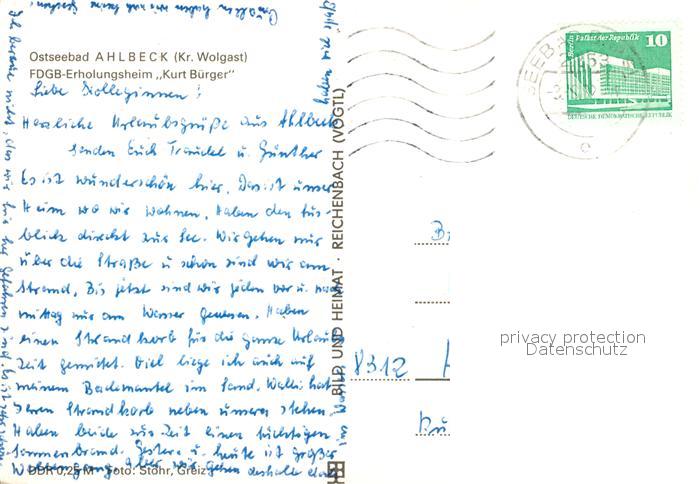 Ostseebad AHLBECK (Kr. Wolgast)
FDGB-Erholungsheim „Kurt Bürger"
Liebe Kolleginnen!
Herzliche Urlaubsgrüße aus Ahlbeck
senden Euch Traudel u. Günther
Es ist wunderschön hier. Das ist unser
Heim wo wir wohnen. Haben den Aus-
blick direkt zur See. Wir gehen nur
über die Straße u. schon sind wir am
Strand. Bis jetzt sind wir jeden vor u. nach
mittag nur am Wasser gewesen. Haben
einen Strandkorb für die ganze Urlaubs
zeit gemietet. Viel liege ich auch auf
meinem Bademantel im Sand. Walli hat
ihren Strandkorb neben unseren stehen
Haben beide zur Zeit einen tüchtigen
Sonnenbrand. Gestern u. heute ist großer
Wellengang. Aber wir gehen deshalb
DDR 0,25 M · Foto: Stöhr, Greiz
BILD UND HEIMAT · REICHENBACH (VOGTL)
Berlin Palast der Republik
10
DEUTSCHE DEMOKRATISCHE REPUBLIK
SEEBAD
2253
e
8312
privacy protection
Datenschutz